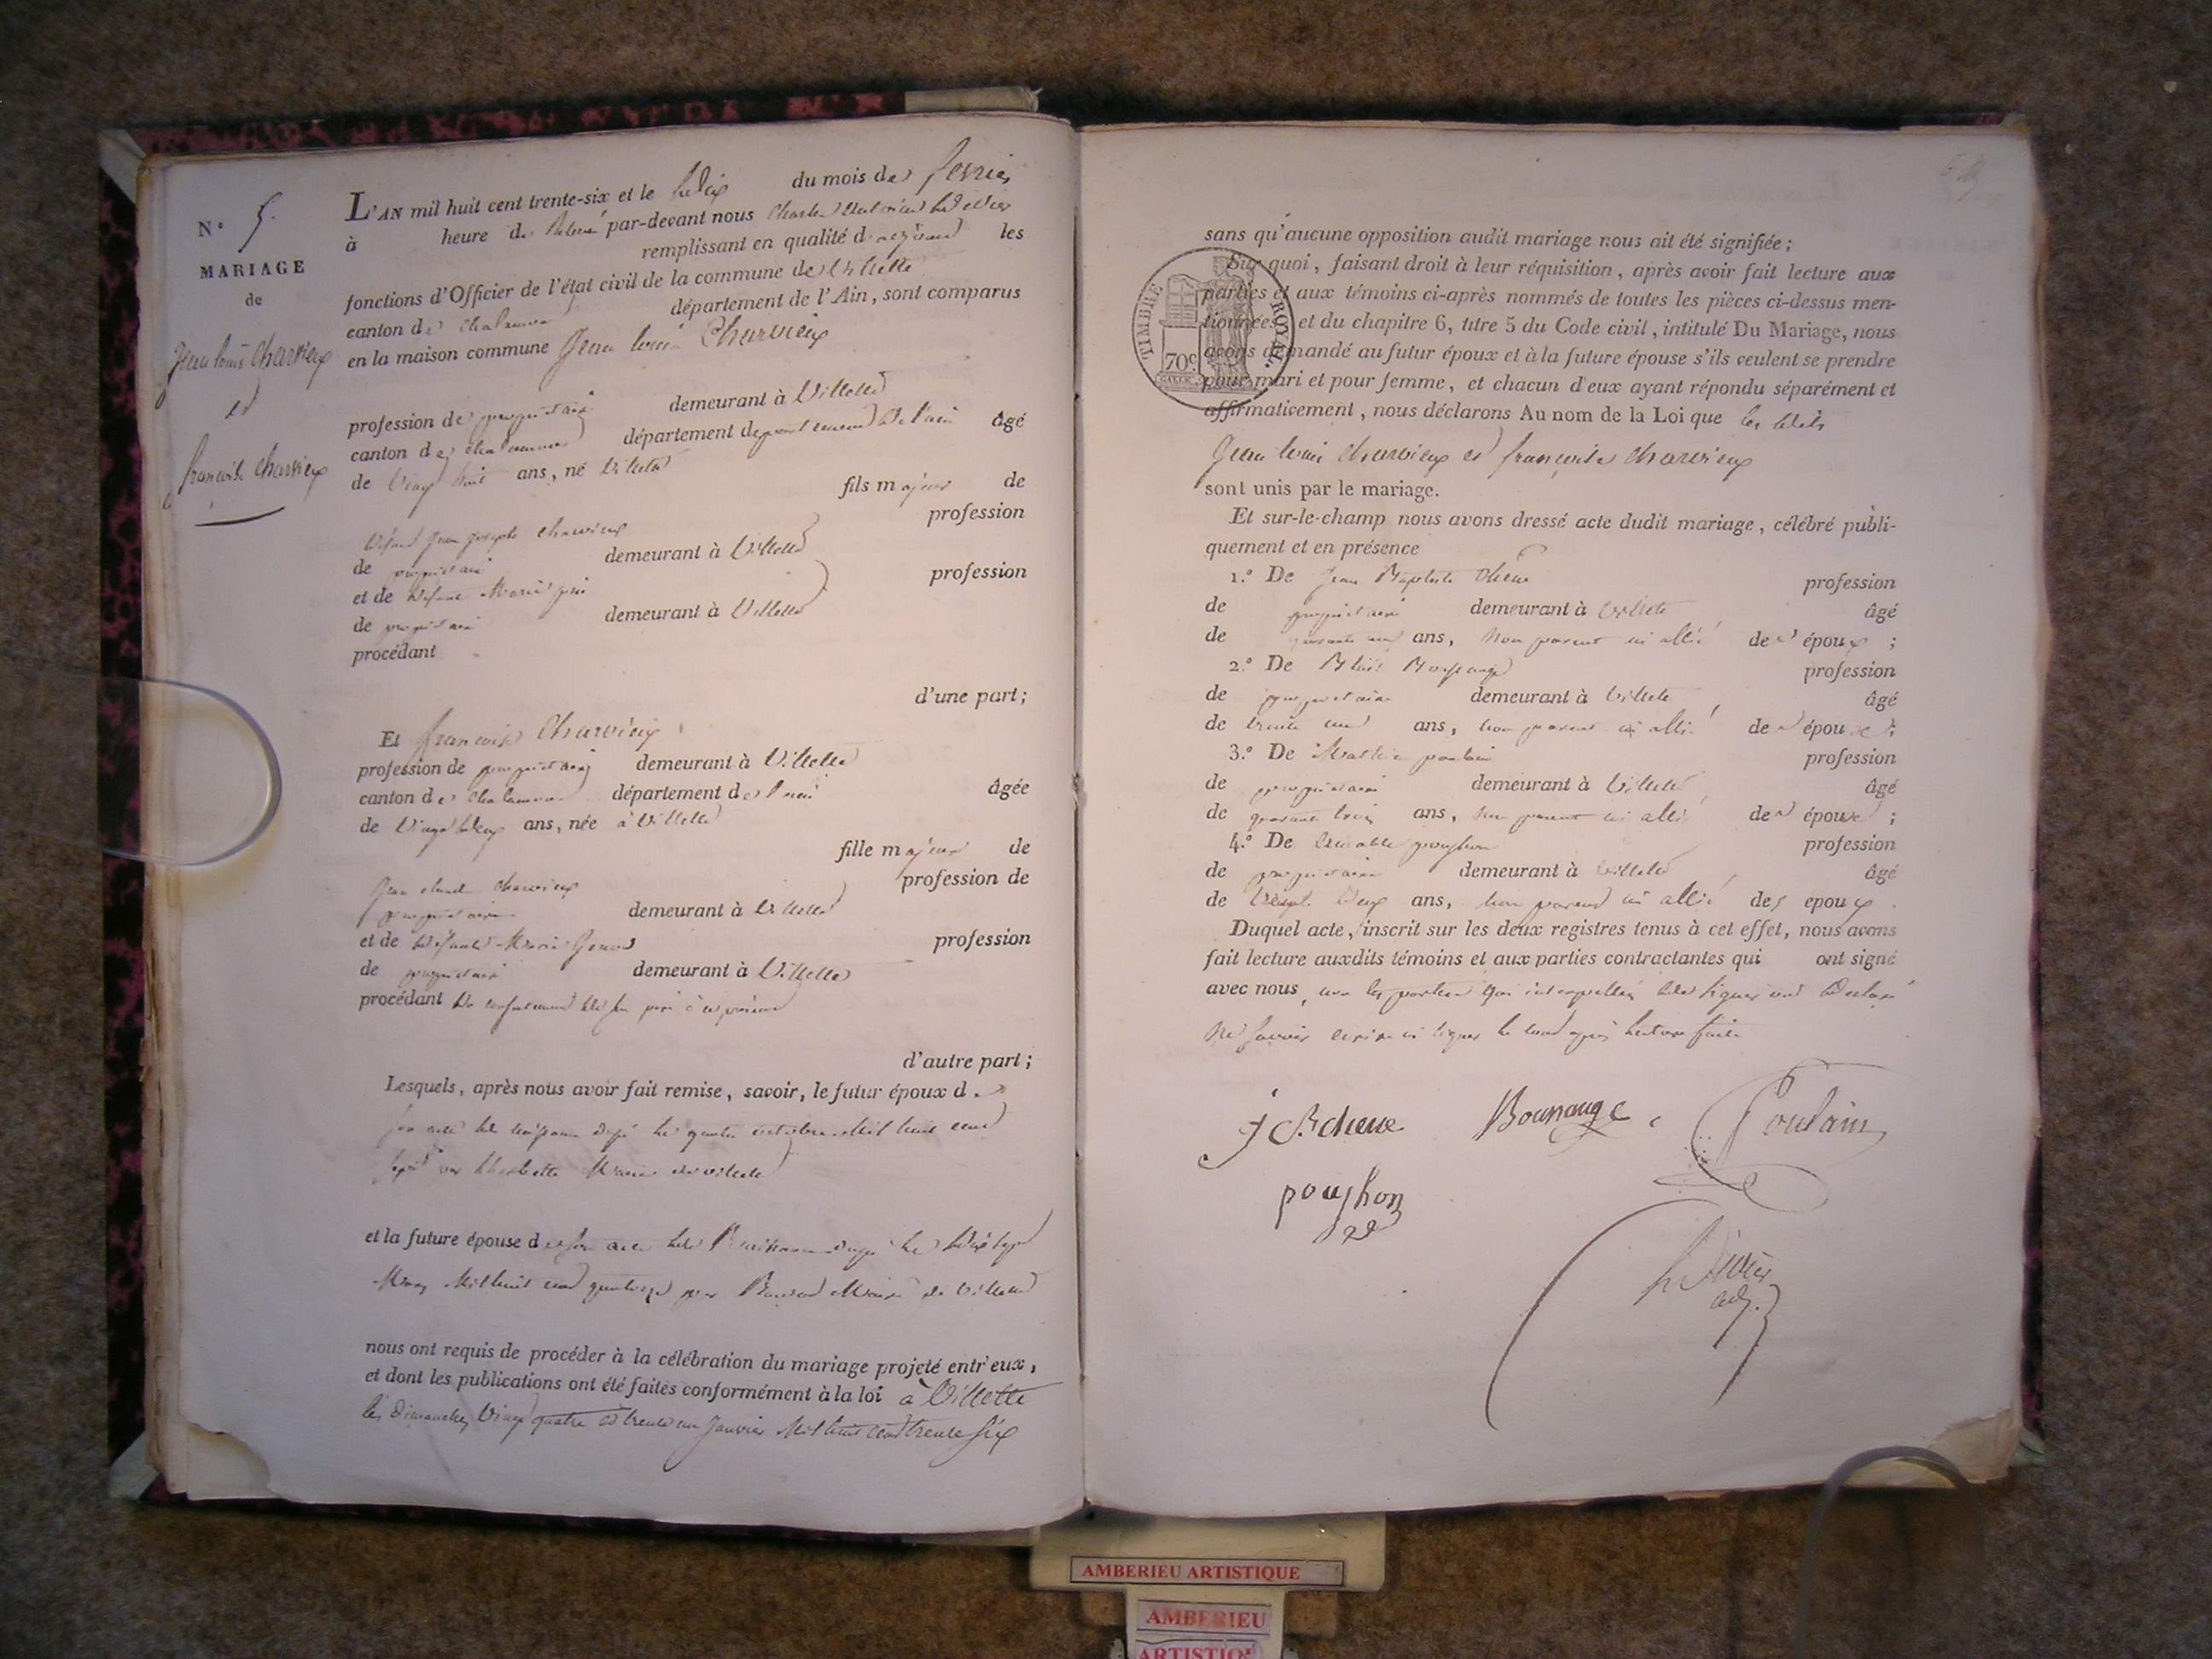 N° 5.
MARIAGE
de
Jean louis Charvieux
et
francoise charvieux
L'AN mil huit cent trente-six et le du mois de fevrier
à heure de par-devant nous
remplissant en qualité d les
fonctions d'Officier de l'état civil de la commune de Villette
canton de chalamon département de l'Ain, sont comparus
en la maison commune Jean louis Charvieux
profession de proprietaire demeurant à Villette
canton de chalamon département de l'ain âgé
de Vingt huit ans, né Villette
fils majeur de
Défunt Jean Joseph Charvieux profession
de propriétaire demeurant à Villette
et de Défunte Marie profession
de propriétaire demeurant à Villette
procédant
d'une part;
Et francoise Charvieux
profession de propriétaire demeurant à Villette
canton de chalamon département de l'ain âgée
de Vingt deux ans, née à Villette
fille majeure de
Jean claude charvieux profession de
propriétaire demeurant à Villette
et de défunte Marie profession
de propriétaire demeurant à Villette
procédant du consentement de son père
d'autre part;
Lesquels, après nous avoir fait remise, savoir, le futur époux de
son acte de naissance le quatre mil huit cent
sept par Maire de villette
et la future épouse de son acte de naissance le dix sept
Mars Mil huit cent quatorze par Maire de Villette
nous ont requis de procéder à la célébration du mariage projeté entr'eux,
et dont les publications ont été faites conformément à la loi à Villette
les dimanches Vingt quatre et trente un Janvier Mil huit cent trente six
sans qu'aucune opposition audit mariage nous ait été signifiée;
Sur quoi, faisant droit à leur réquisition, après avoir fait lecture aux
parties et aux témoins ci-après nommés de toutes les pièces ci-dessus men-
tionnées, et du chapitre 6, titre 5 du Code civil, intitulé Du Mariage, nous
avons demandé au futur époux et à la future épouse s'ils veulent se prendre
pour mari et pour femme, et chacun d'eux ayant répondu séparément et
affirmativement, nous déclarons Au nom de la Loi que les dits
TIMBRE ROYAL.
70c
Jean louis charvieux et françoise charvieux
sont unis par le mariage.
Et sur-le-champ nous avons dressé acte dudit mariage, célébré publi-
quement et en présence
1.° De Jean Baptiste chêne profession
de propriétaire demeurant à Villette âgé
de ans, non parent ni allié des époux;
2.° De Blaise profession
de propriétaire demeurant à Villette âgé
de trente ans, non parent ni allié de épouse;
3.° De poulain profession
de propriétaire demeurant à Villette âgé
de quarante trois ans, non parent ni allié de épouse;
4.° De profession
de propriétaire demeurant à Villette âgé
de deux ans, non parent ni allié des epoux.
Duquel acte, inscrit sur les deux registres tenus à cet effet, nous avons
fait lecture auxdits témoins et aux parties contractantes qui ont signé
avec nous, non les parties qui interpellées de signer ont declaré
ne savoir ecrire ni signer le tout après lecture faite
J B chene
Bournauge
Poulain
poughon
adj.
AMBERIEU ARTISTIQUE
AMBERIEU
ARTISTIQ